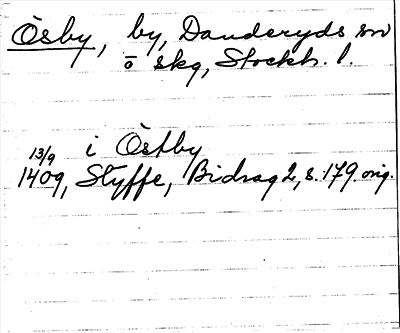 Ösby, by, Danderyds sn
o skg, Stockh. l.
i Östby
13/9 1409, Styffe, Bidrag 2, s. 179. orig.